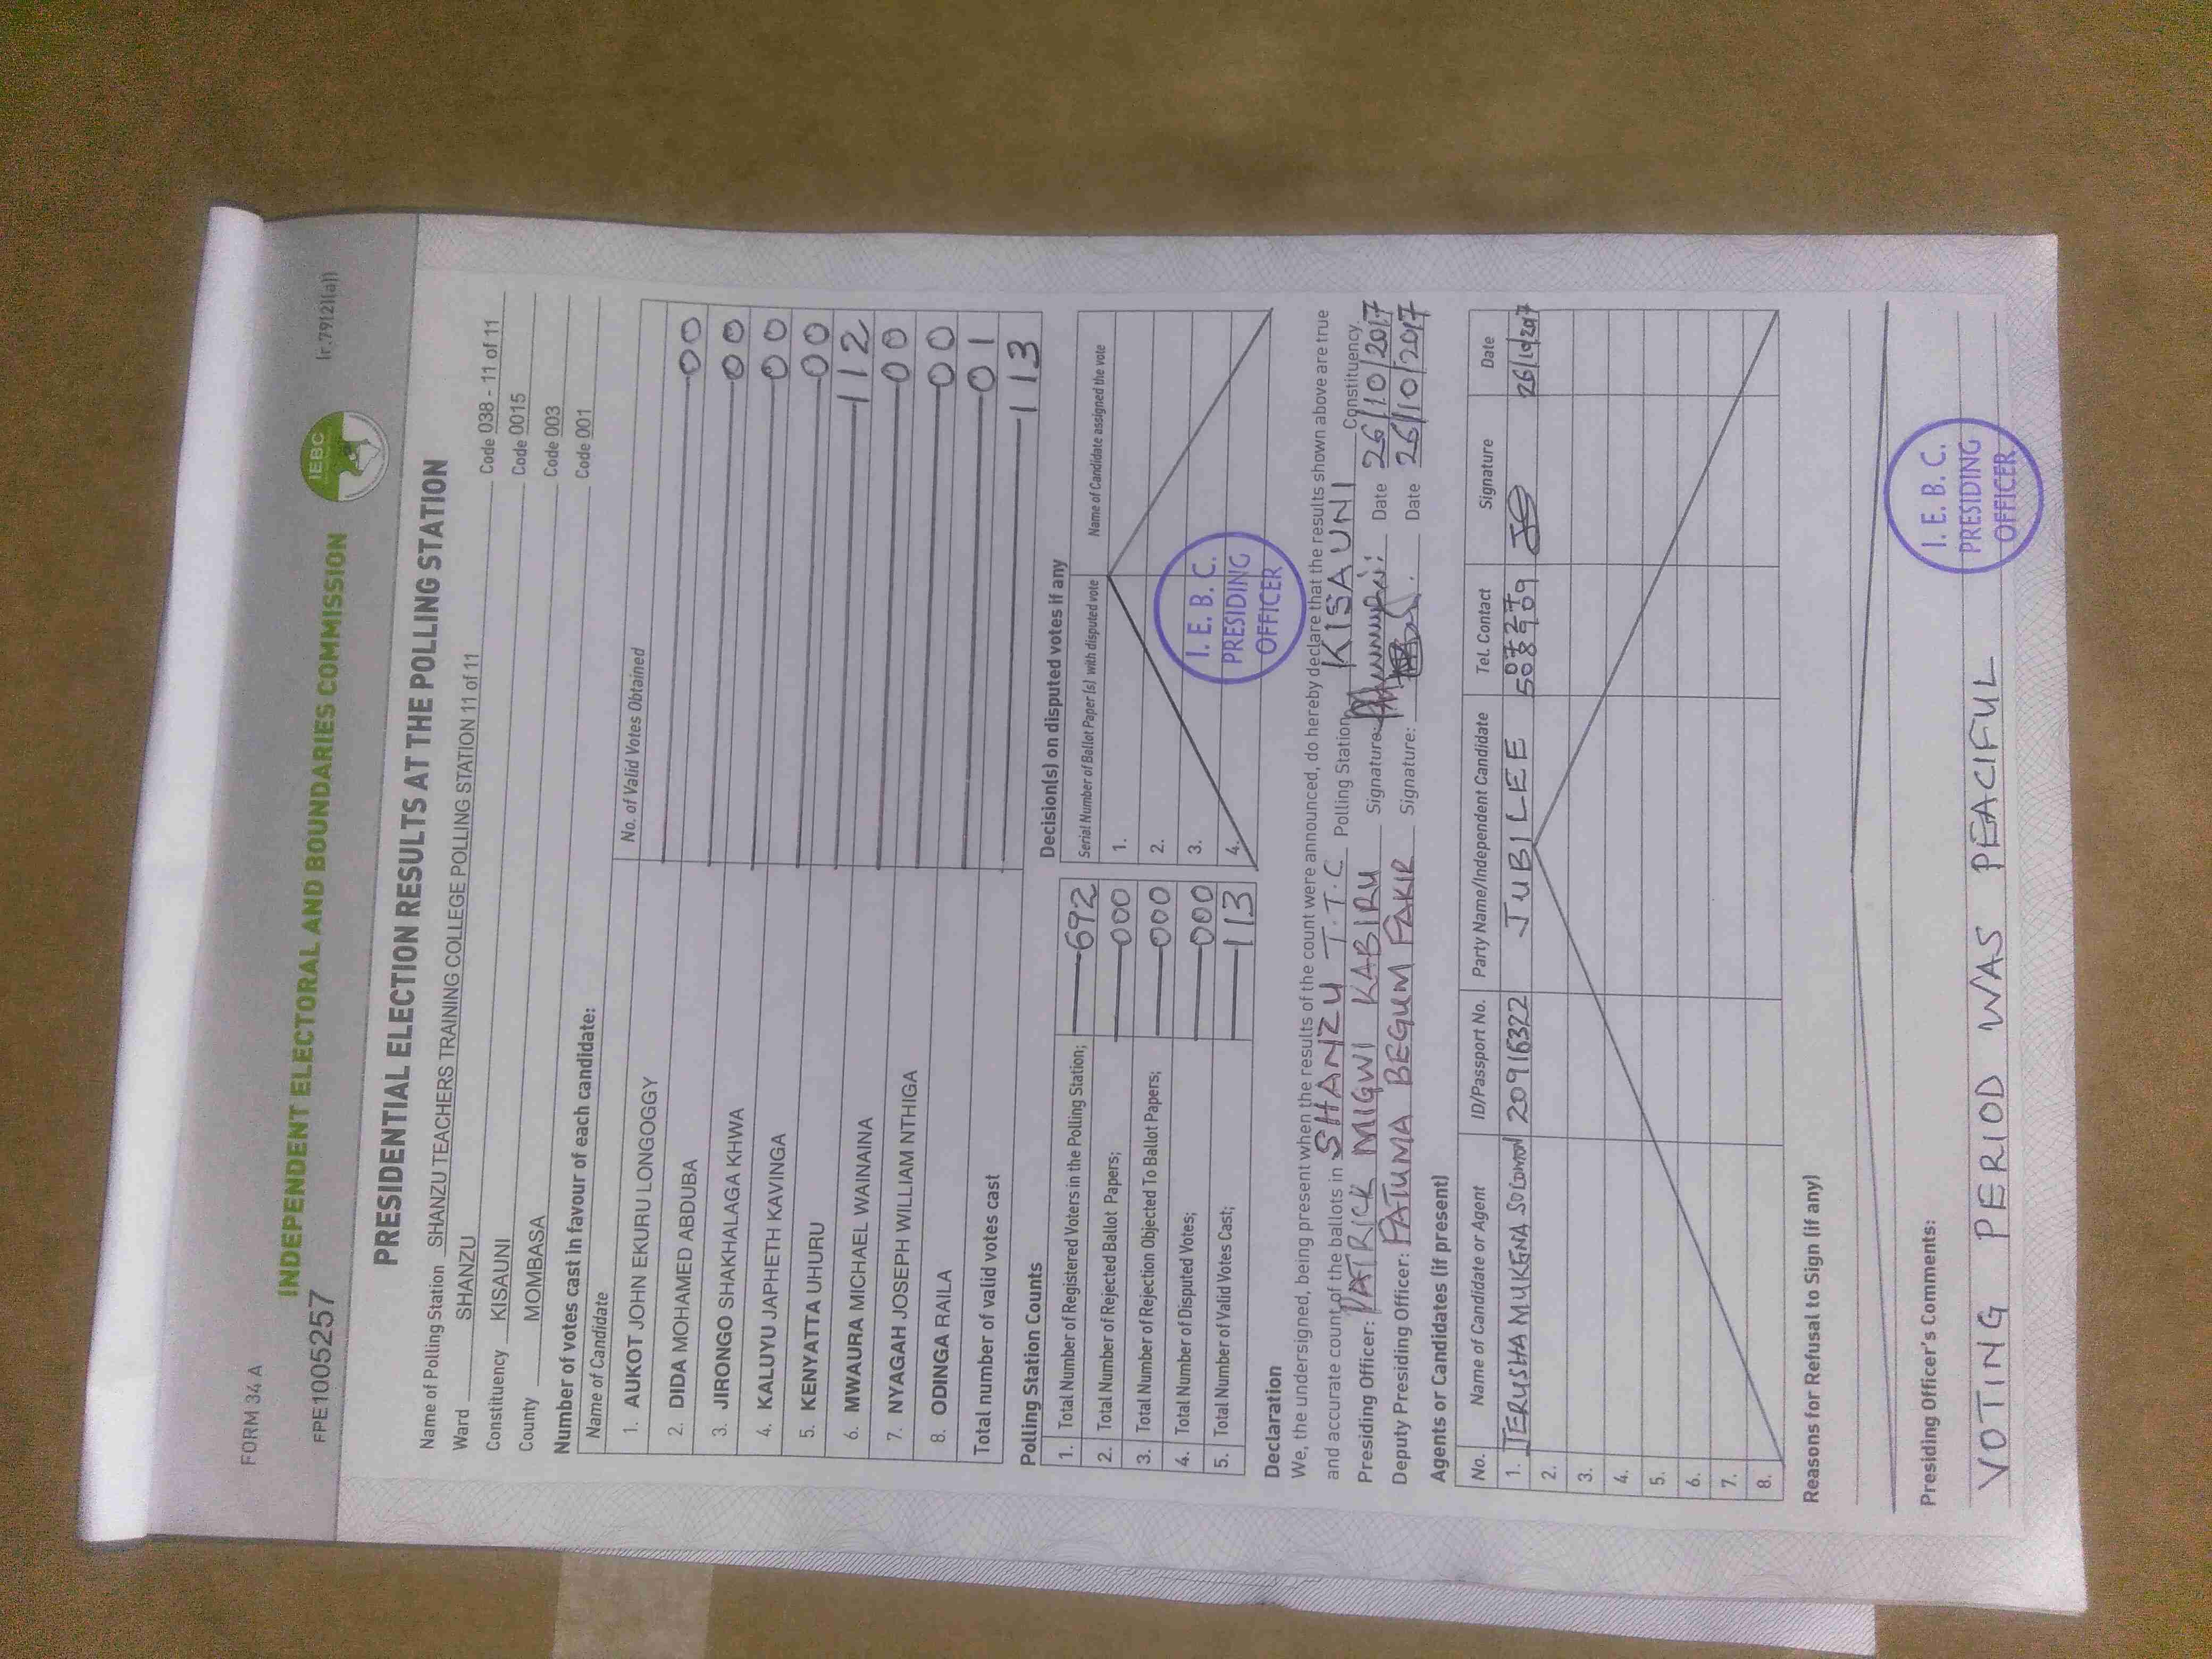 FORM 34 A
FPE1005257
INDEPENDENT ELECTORAL AND BOUNDARIES COMMISSION
IEBC
(r.79(2)(a))
PRESIDENTIAL ELECTION RESULTS AT THE POLLING STATION
Name of Polling Station SHANZU TEACHERS TRAINING COLLEGE POLLING STATION 11 of 11 Code 038 - 11 of 11
Ward SHANZU Code 0015
Constituency KISAUNI Code 003
County MOMBASA Code 001
Number of votes cast in favour of each candidate:
Name of Candidate No. of Valid Votes Obtained
1. AUKOT JOHN EKURU LONGOGGY 00
2. DIDA MOHAMED ABDUBA 00
3. JIRONGO SHAKHALAGA KHWA 00
4. KALUYU JAPHETH KAVINGA 00
5. KENYATTA UHURU 112
6. MWAURA MICHAEL WAINAINA 00
7. NYAGAH JOSEPH WILLIAM NTHIGA 00
8. ODINGA RAILA 01
Total number of valid votes cast 113
Polling Station Counts
1. Total Number of Registered Voters in the Polling Station; 692
2. Total Number of Rejected Ballot Papers; 000
3. Total Number of Rejection Objected To Ballot Papers; 000
4. Total Number of Disputed Votes; 000
5. Total Number of Valid Votes Cast; 113
Decision(s) on disputed votes if any
Serial Number of Ballot Paper(s) with disputed vote Name of Candidate assigned the vote
1.
2.
3.
4.
I. E. B. C.
PRESIDING
OFFICER
Declaration
We, the undersigned, being present when the results of the count were announced, do hereby declare that the results shown above are true
and accurate count of the ballots in SHANZU T.T.C Polling Station KISAUNI Constituency.
Presiding Officer: PATRICK MIGWI KABIRU Signature: Date 26/10/2017
Deputy Presiding Officer: FATUMA BEGUM FAKIR Signature: Date 26/10/2017
Agents or Candidates (if present)
No. Name of Candidate or Agent ID/Passport No. Party Name/Independent Candidate Tel. Contact Signature Date
1. JERUSHA MUKENA SOLOMON 20916322 JUBILEE 0727 508909 26/10/2017
2.
3.
4.
5.
6.
7.
8.
Reasons for Refusal to Sign (if any)
Presiding Officer's Comments:
VOTING PERIOD WAS PEACIFUL
I. E. B. C.
PRESIDING
OFFICER